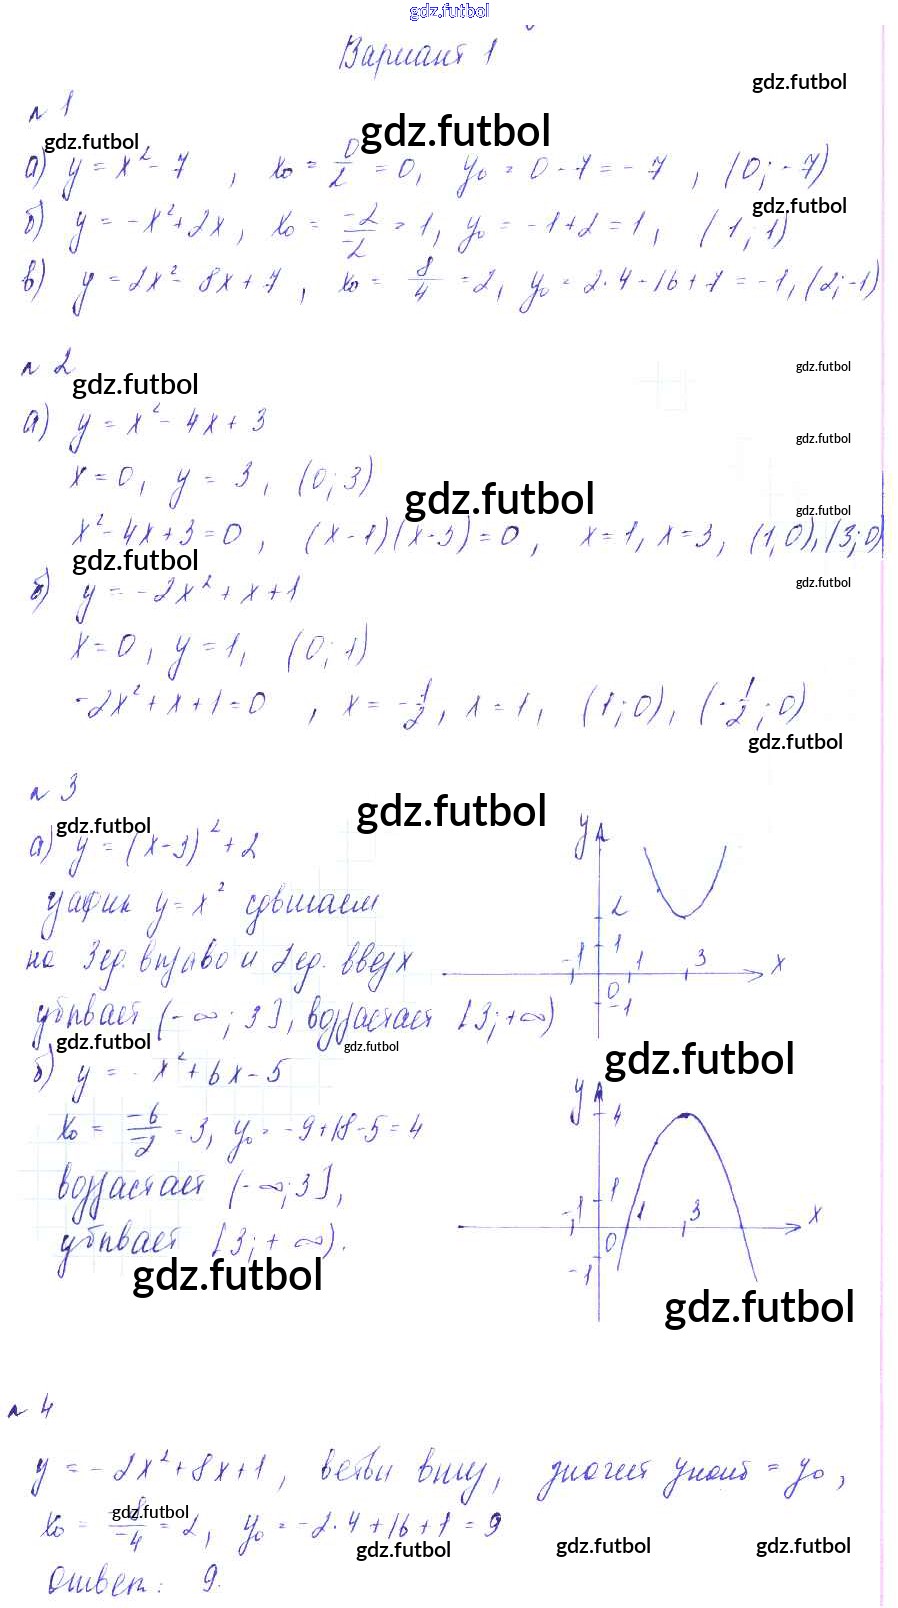 gdz.futbol
Вариант 1
gdz.futbol
№ 1
gdz.futbol gdz.futbol
а) y = x² - 7 , x₀ = 0/2 = 0, y₀ = 0 - 7 = - 7 , (0; -7)
gdz.futbol
б) y = -x² + 2x, x₀ = -2/-2 = 1, y₀ = -1+2 = 1, (1; 1)
в) y = 2x² - 8x + 7 , x₀ = 8/4 = 2, y₀ = 2·4 - 16 + 7 = -1, (2; -1)
№ 2
gdz.futbol gdz.futbol
а) y = x² - 4x + 3
gdz.futbol
x = 0, y = 3, (0; 3)
gdz.futbol gdz.futbol
x² - 4x + 3 = 0 , (x - 1)(x - 3) = 0 , x = 1, x = 3, (1; 0), (3; 0)
gdz.futbol gdz.futbol
б) y = -2x² + x + 1
x = 0, y = 1, (0; 1)
-2x² + x + 1 = 0 , x = -1/2, x = 1, (1; 0), (-1/2; 0)
gdz.futbol
№ 3
gdz.futbol gdz.futbol
а) y = (x-3)² + 2
график y = x² сдвигаем
на 3 ед. вправо и 2 ед. вверх
убывает (-∞; 3], возрастает [3; +∞)
y
2
1
-1 0 1 3 x
-1
gdz.futbol gdz.futbol gdz.futbol
б) y = - x² + 6x - 5
x₀ = -6/-2 = 3, y₀ = -9+18-5 = 4
возрастает (-∞; 3],
убывает [3; +∞).
y
4
1
-1 0 1 3 x
-1
gdz.futbol gdz.futbol
№ 4
y = -2x² + 8x + 1, ветви вниз, значит yнаиб = y₀,
gdz.futbol
x₀ = -8/-4 = 2, y₀ = -2·4 + 16 + 1 = 9
gdz.futbol gdz.futbol gdz.futbol
Ответ: 9.